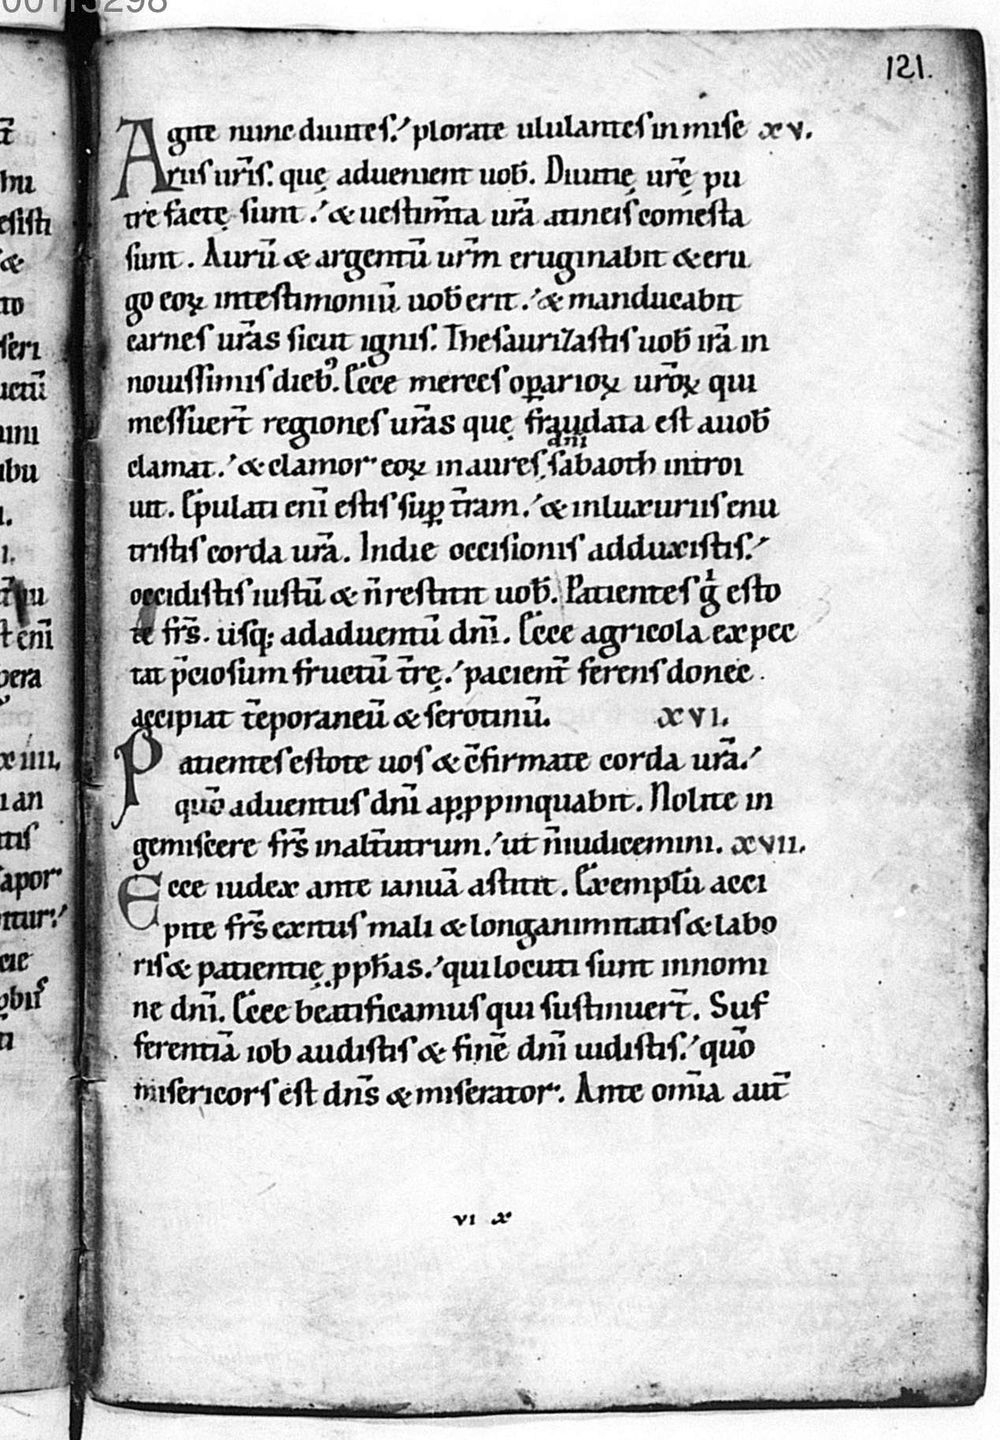 00115298
121.
Agite nunc diuites.' plorate ululantes in mise xv.
riis ur̄is. quę aduenient uob̄. Diuitię urę̄ pu
tre factę sunt.' & uestim̄ta ur̄a a tineis comesta
sunt. Aurū & argentū ur̄m eruginabit & eru
go eoꝝ intestimoniū uob̄ erit.' & manducabit
carnes ur̄as sicut ignis. Thesaurizastis uob̄ irā in
nouissimis dieb᾿. Ecce merces oꝑarioꝝ ur̄oꝝ qui
messuer̄t regiones ur̄as quę fraudata est auob̄
clamat.' & clamor eoꝝ in aures dn̄i sabaoth introi
uit. Epulati enī estis suꝑ t̄ram.' & inluxuriis enu
tristis corda ur̄a. Indie occisionis adduxistis.'
occidistis iustū & n̄ restitit uob̄. Patientes g̊ esto
te fr̄s. usq; adaduentū dn̄i. Ecce agricola expec
tat p̄ciosum fructū t̄rę.' pacient̄ ferens donec
accipiat t̄eporaneū & serotinū. xvi.
Patientes estote uos & c̄firmate corda ur̄a.'
quō aduentus dn̄i apꝓpinquabit. Nolite in
gemiscere fr̄s inalt̄utrum.' ut n̄ iudicemini. xvii.
Ecce iudex ante ianuā astitit. Exemplū acci
pite fr̄s exitus mali & longanimitatis & labo
ris & patientię ꝓph̄as.' qui locuti sunt innomi
ne dn̄i. Ecce beatificamus qui sustinuer̄t. Suf
ferentiā iob audistis & finē dn̄i uidistis.' quō
misericors est dn̄s & miserator. Ante om̄ia aut̄
vi x